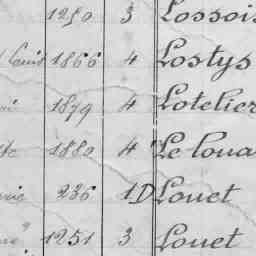 1250 3 Lossois
Louis 1866 4 Lostys
1879 4 Lotelier
1880 4 Le loua
236 1D Louet
1251 3 Louet